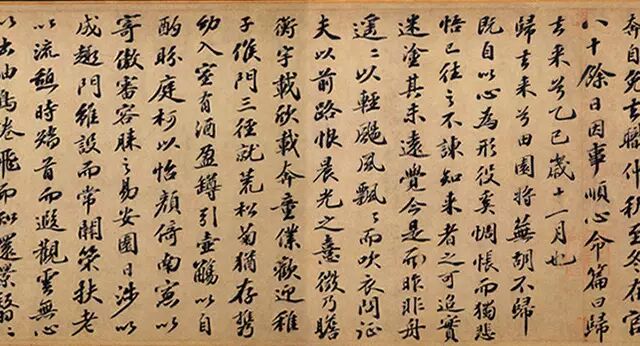 奔自免去職仲秋至冬在官
八十餘日因事順心命篇曰歸
去来兮乙巳歲十一月也
歸去来兮田園將蕪胡不歸
既自以心為形役奚惆悵而獨悲
悟已往之不諫知来者之可追實
迷塗其未遠覺今是而昨非舟
遥〻以輕颺風飄〻而吹衣問征
夫以前路恨晨光之熹微乃瞻
衡宇載欣載奔童僕歡迎稚
子候門三徑就荒松菊猶存攜
幼入室有酒盈罇引壺觴以自
酌眄庭柯以怡顏倚南窻以
寄傲審容膝之易安園日涉以
成趣門雖設而常關策扶老
以流憩時矯首而遐觀雲無心
以出岫鳥倦飛而知還景翳〻